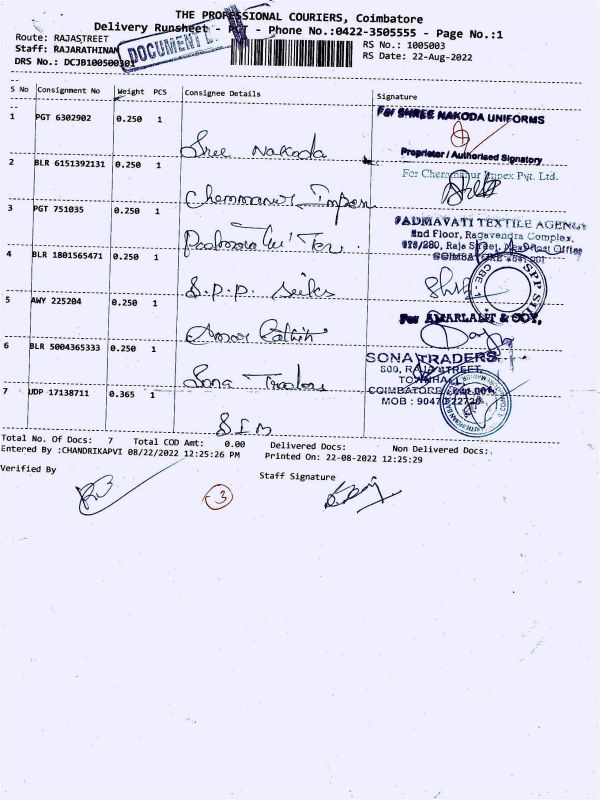 THE PROFESSIONAL COURIERS, Coimbatore
Delivery Runsheet - PGT - Phone No.:0422-3505555 - Page No.:1
Route: RAJASTREET
RS No.: 1005003
Staff: RAJARATHINAM
RS Date: 22-Aug-2022
DRS No.: DCJB100500301
DOCUMENT
S No Consignment No Weight PCS Consignee Details Signature
1 PGT 6302902 0.250 1 Sree Nakoda
For SHREE NAKODA UNIFORMS
Proprietor / Authorised Signatory
2 BLR 6151392131 0.250 1 Chemmanur Impex
For Chemmanur Impex Pvt. Ltd.
3 PGT 751035 0.250 1
PADMAVATI TEXTILE AGENCY
2nd Floor, Ragavendra Complex,
Raja Street, Near Post Office
COIMBATORE - 641 001
4 BLR 1801565471 0.250 1 S.P.P. Silks
SPP SILKS
CBE
5 AWY 225204 0.250 1 Amar
For AMARLALIT & COY,
6 BLR 5004365333 0.250 1 Sona Traders
SONA TRADERS
800, RAJA STREET,
TOWNHALL,
COIMBATORE - 641 001.
MOB : 9047022728
7 UDP 17138711 0.365 1 S.I.B
Total No. Of Docs: 7 Total COD Amt: 0.00 Delivered Docs: Non Delivered Docs:
Entered By :CHANDRIKAPVI 08/22/2022 12:25:26 PM Printed On: 22-08-2022 12:25:29
Verified By
Staff Signature
-3